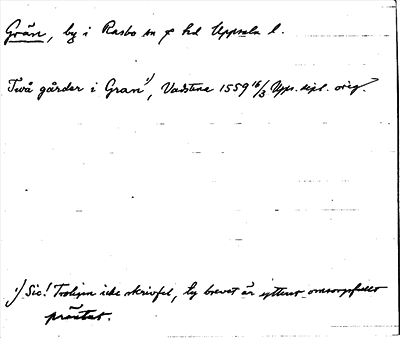 Grän, by i Rasbo sn o hd Uppsala l.
Två gårdar i Gran¹⁾, Vadstena 1559 16/3 Upps. dipl. orig.
¹⁾ Sic! Troligen icke skrivfel, ty brevet är ytterst omsorgsfullt
präntat.